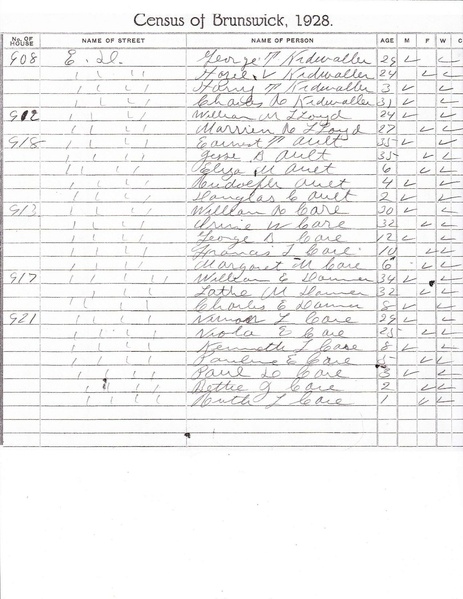 Census of Brunswick, 1928.
No. OF HOUSE NAME OF STREET NAME OF PERSON AGE M F W C
908 E. D. George T Kidwaller 29
Hazel V Kidwaller 24
Harry T Kidwaller 3
Charles R Kidwaller 31
912 William M LLoyd 24
LLoyd 27
918 Earnest T Ault 35
Jesse B Ault 35
Eliza M Ault 6
Rudolph Ault 4
Douglas C Ault 2
913 William R Care 30
W Care 32
George B Care 12
Francis L Care 10
Margaret M Care 6
917 William E 34
M 32
Charles E 8
921 L Care 29
Viola E Care 25
Kenneth L Care 8
Pauline E Care 5
Paul D Care 3
Bettie J Care 2
Ruth L Care 1